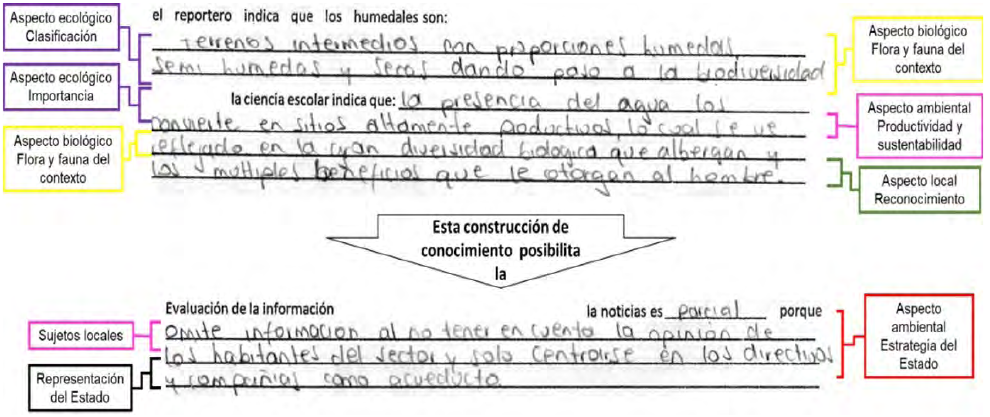 Aspecto ecológico
Clasificación
Aspecto ecológico
Importancia
Aspecto biológico
Flora y fauna del
contexto
el reportero indica que los humedales son:
terrenos intermedios con proporciones humedas
semi humedas y secas dando paso a la biodiversidad
la ciencia escolar indica que: la presencia del agua los
convierte en sitios altamente productivos, lo cual se ve
reflejado en la gran diversidad biologica que albergan y
los multiples beneficios que le otorgan al hombre.
Aspecto biológico
Flora y fauna del
contexto
Aspecto ambiental
Productividad y
sustentabilidad
Aspecto local
Reconocimiento
Esta construcción de
conocimiento posibilita
la
Sujetos locales
Representación
del Estado
Evaluación de la información la noticias es parcial porque
omite informacion al no tener en cuenta la opinión de
los habitantes del sector y solo centrarse en los directivos
y compañias como acueducto.
Aspecto
ambiental
Estrategia del
Estado